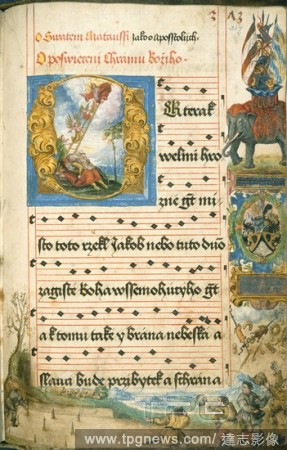 O Swatem Mataussi jako o aposstolich.
O poswieceni Chramu Božiho.
3 A3
Kterak
welmi hro
zné gt mi
sto toto rzekl Jakob nebo tuto duo
ragiste boha wssemohutzyho gt
a k tomu take y brána nebeska a
slauna bude przibytek a schrána
www.tpgnews.com/達志影像